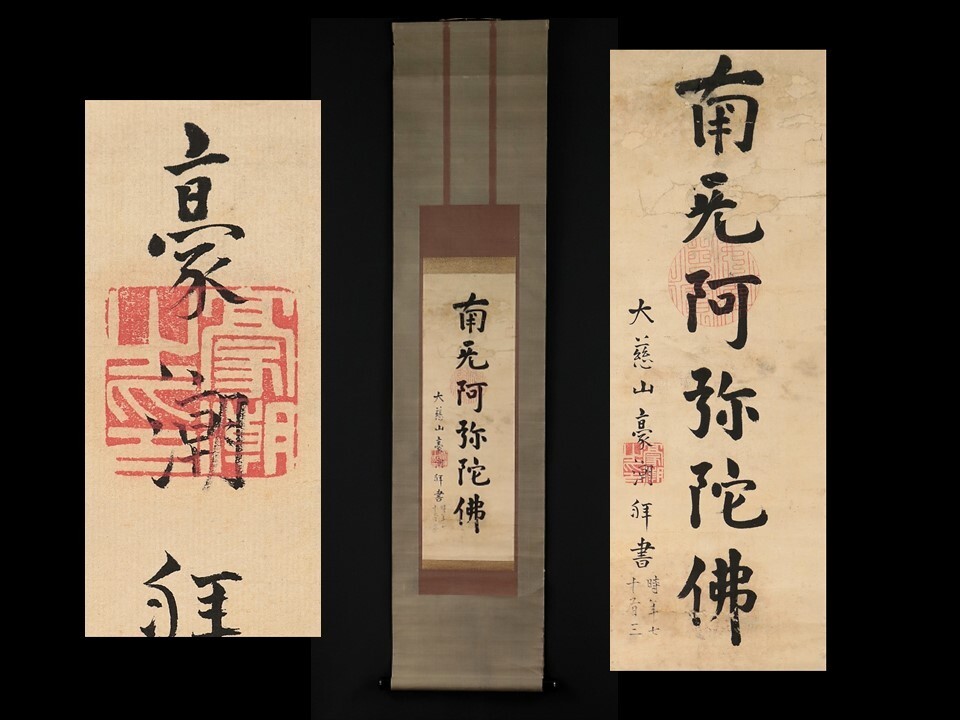 豪潮拜
南无阿弥陀佛
大慈山豪潮拜書
南无阿弥陀佛
大慈山豪潮拜書
時年七
十有三